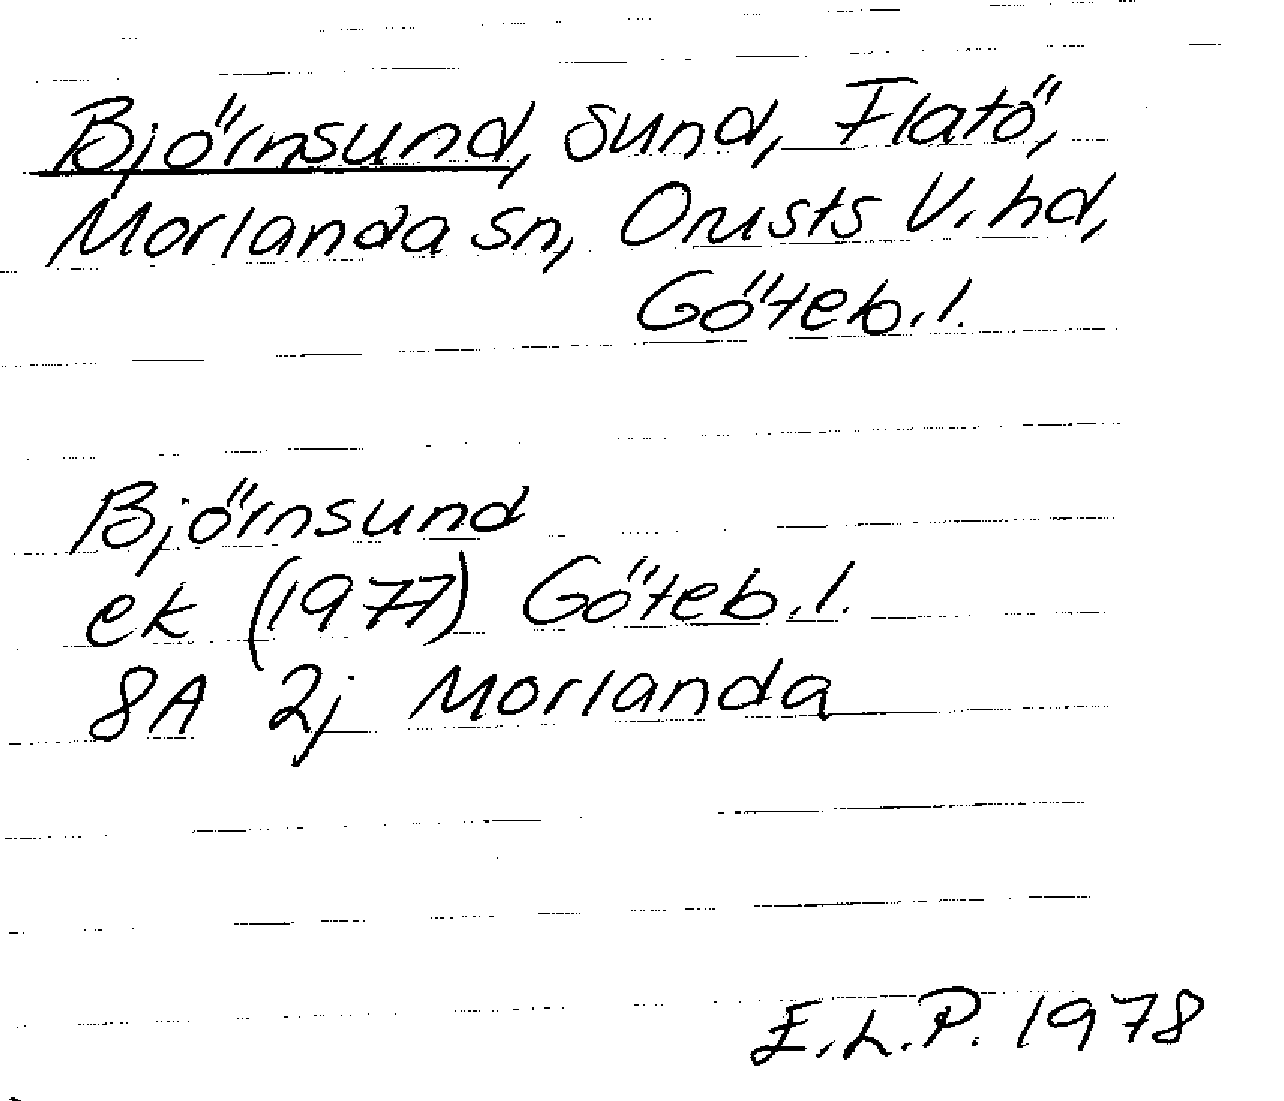 Björnsund, Sund, Flatö,
Morlanda sn, Orusts V. hd,
Göteb. l.
Björnsund
ek (1977) Göteb. l.
8A 2j Morlanda
E.L.P. 1978